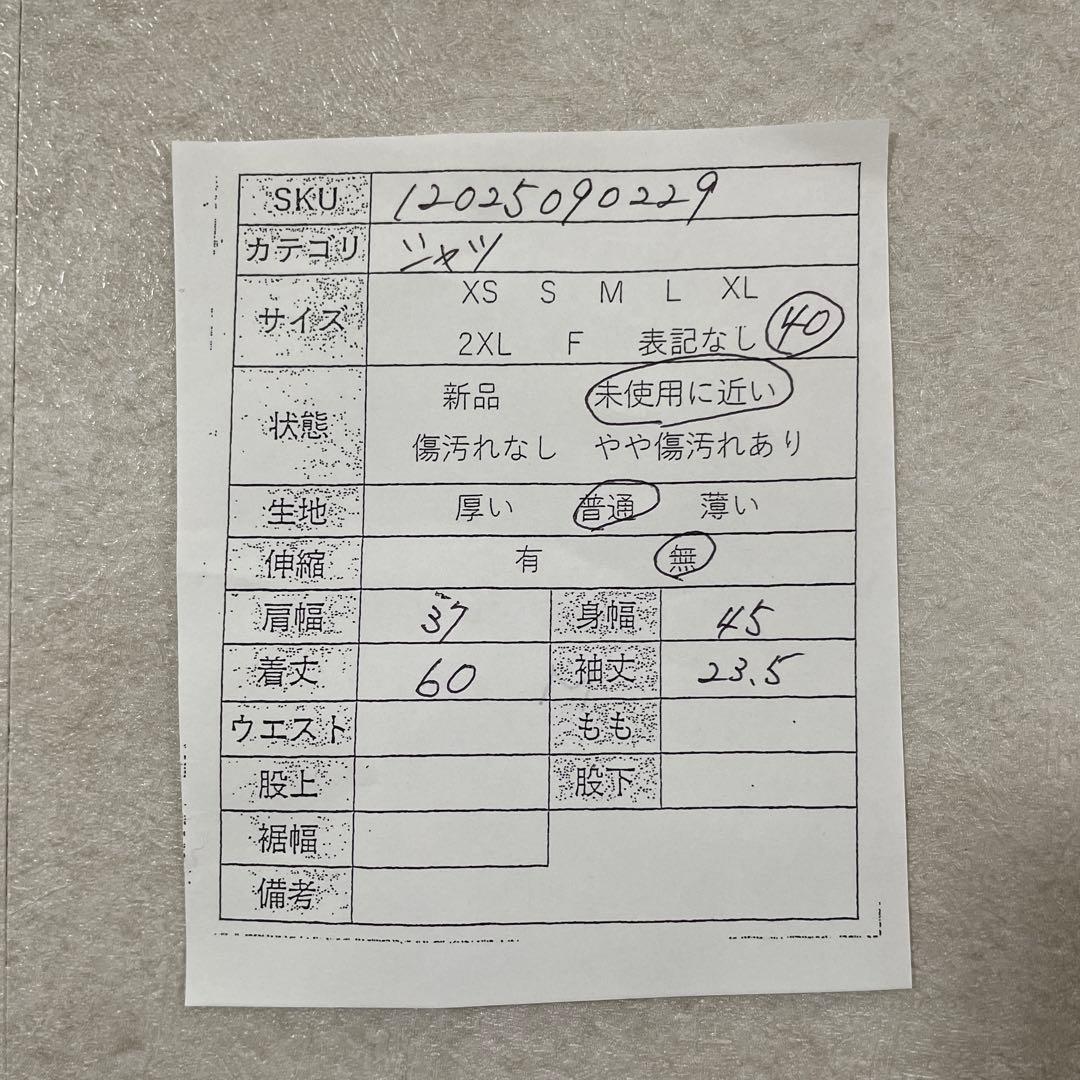 SKU 12025090229
カテゴリ シャツ
サイズ XS S M L XL
2XL F 表記なし 40
状態 新品 未使用に近い
傷汚れなし やや傷汚れあり
生地 厚い 普通 薄い
伸縮 有 無
肩幅 37 身幅 45
着丈 60 袖丈 23.5
ウエスト もも
股上 股下
裾幅
備考